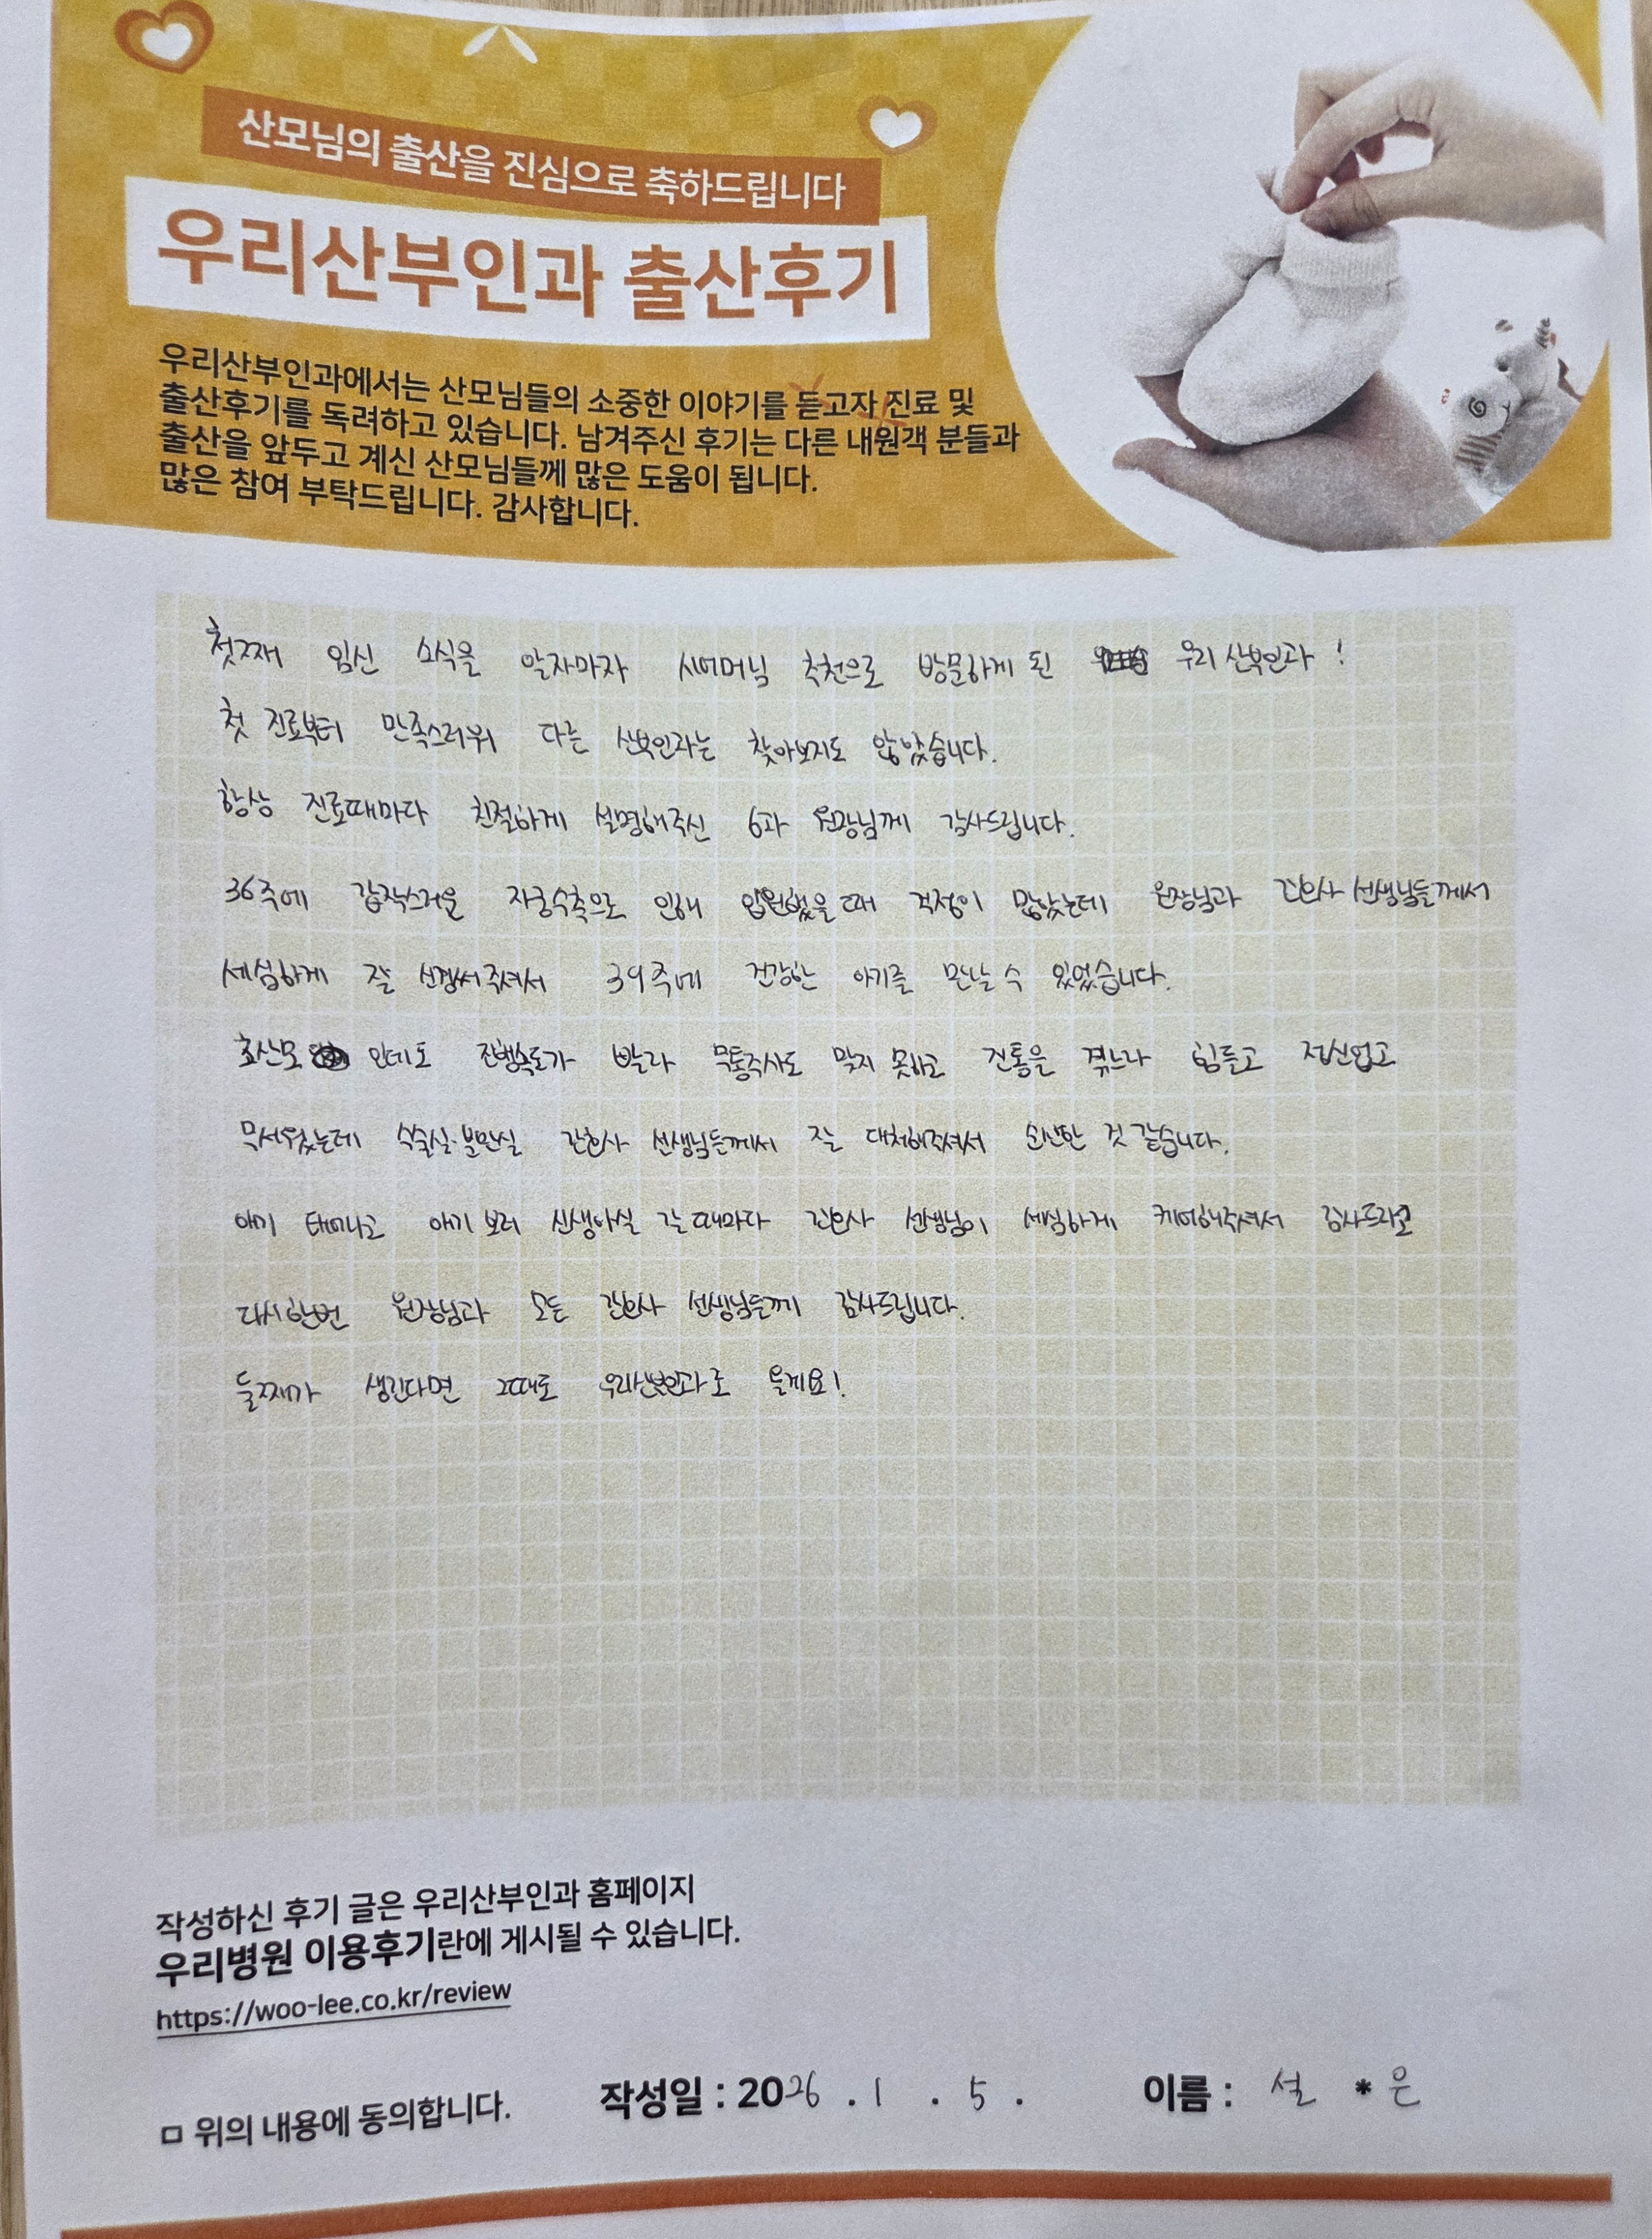 산모님의 출산을 진심으로 축하드립니다
우리산부인과 출산후기
우리산부인과에서는 산모님들의 소중한 이야기를 듣고자 진료 및
출산후기를 독려하고 있습니다. 남겨주신 후기는 다른 내원객 분들과
출산을 앞두고 계신 산모님들께 많은 도움이 됩니다.
많은 참여 부탁드립니다. 감사합니다.
첫째 임신 소식을 알자마자 시어머님 추천으로 방문하게 된 우리 산부인과!
첫 진료부터 만족스러워 다른 산부인과는 찾아보지도 않았습니다.
항상 진료때마다 친절하게 설명해주신 6과 원장님께 감사드립니다.
36주에 갑작스러운 자궁수축으로 인해 입원했을 때 걱정이 많았는데 원장님과 간호사 선생님들께서
세심하게 잘 신경써주셔서 39주에 건강한 아기를 만날 수 있었습니다.
초산모 인데도 진행속도가 빨라 무통주사도 맞지 못하고 진통을 겪느라 힘들고 정신없고
무서웠는데 수술실·분만실 간호사 선생님들께서 잘 대처해주셔서 순산한 것 같습니다.
아기 태어나고 아기 보러 신생아실 갈 때마다 간호사 선생님이 세심하게 케어해주셔서 감사드리고
다시한번 원장님과 모든 간호사 선생님들께 감사드립니다.
둘째가 생긴다면 그때도 우리산부인과로 올게요!
작성하신 후기 글은 우리산부인과 홈페이지
우리병원 이용후기란에 게시될 수 있습니다.
https://woo-lee.co.kr/review
□ 위의 내용에 동의합니다. 작성일 : 2026 . 1 . 5 . 이름 : 설 * 은